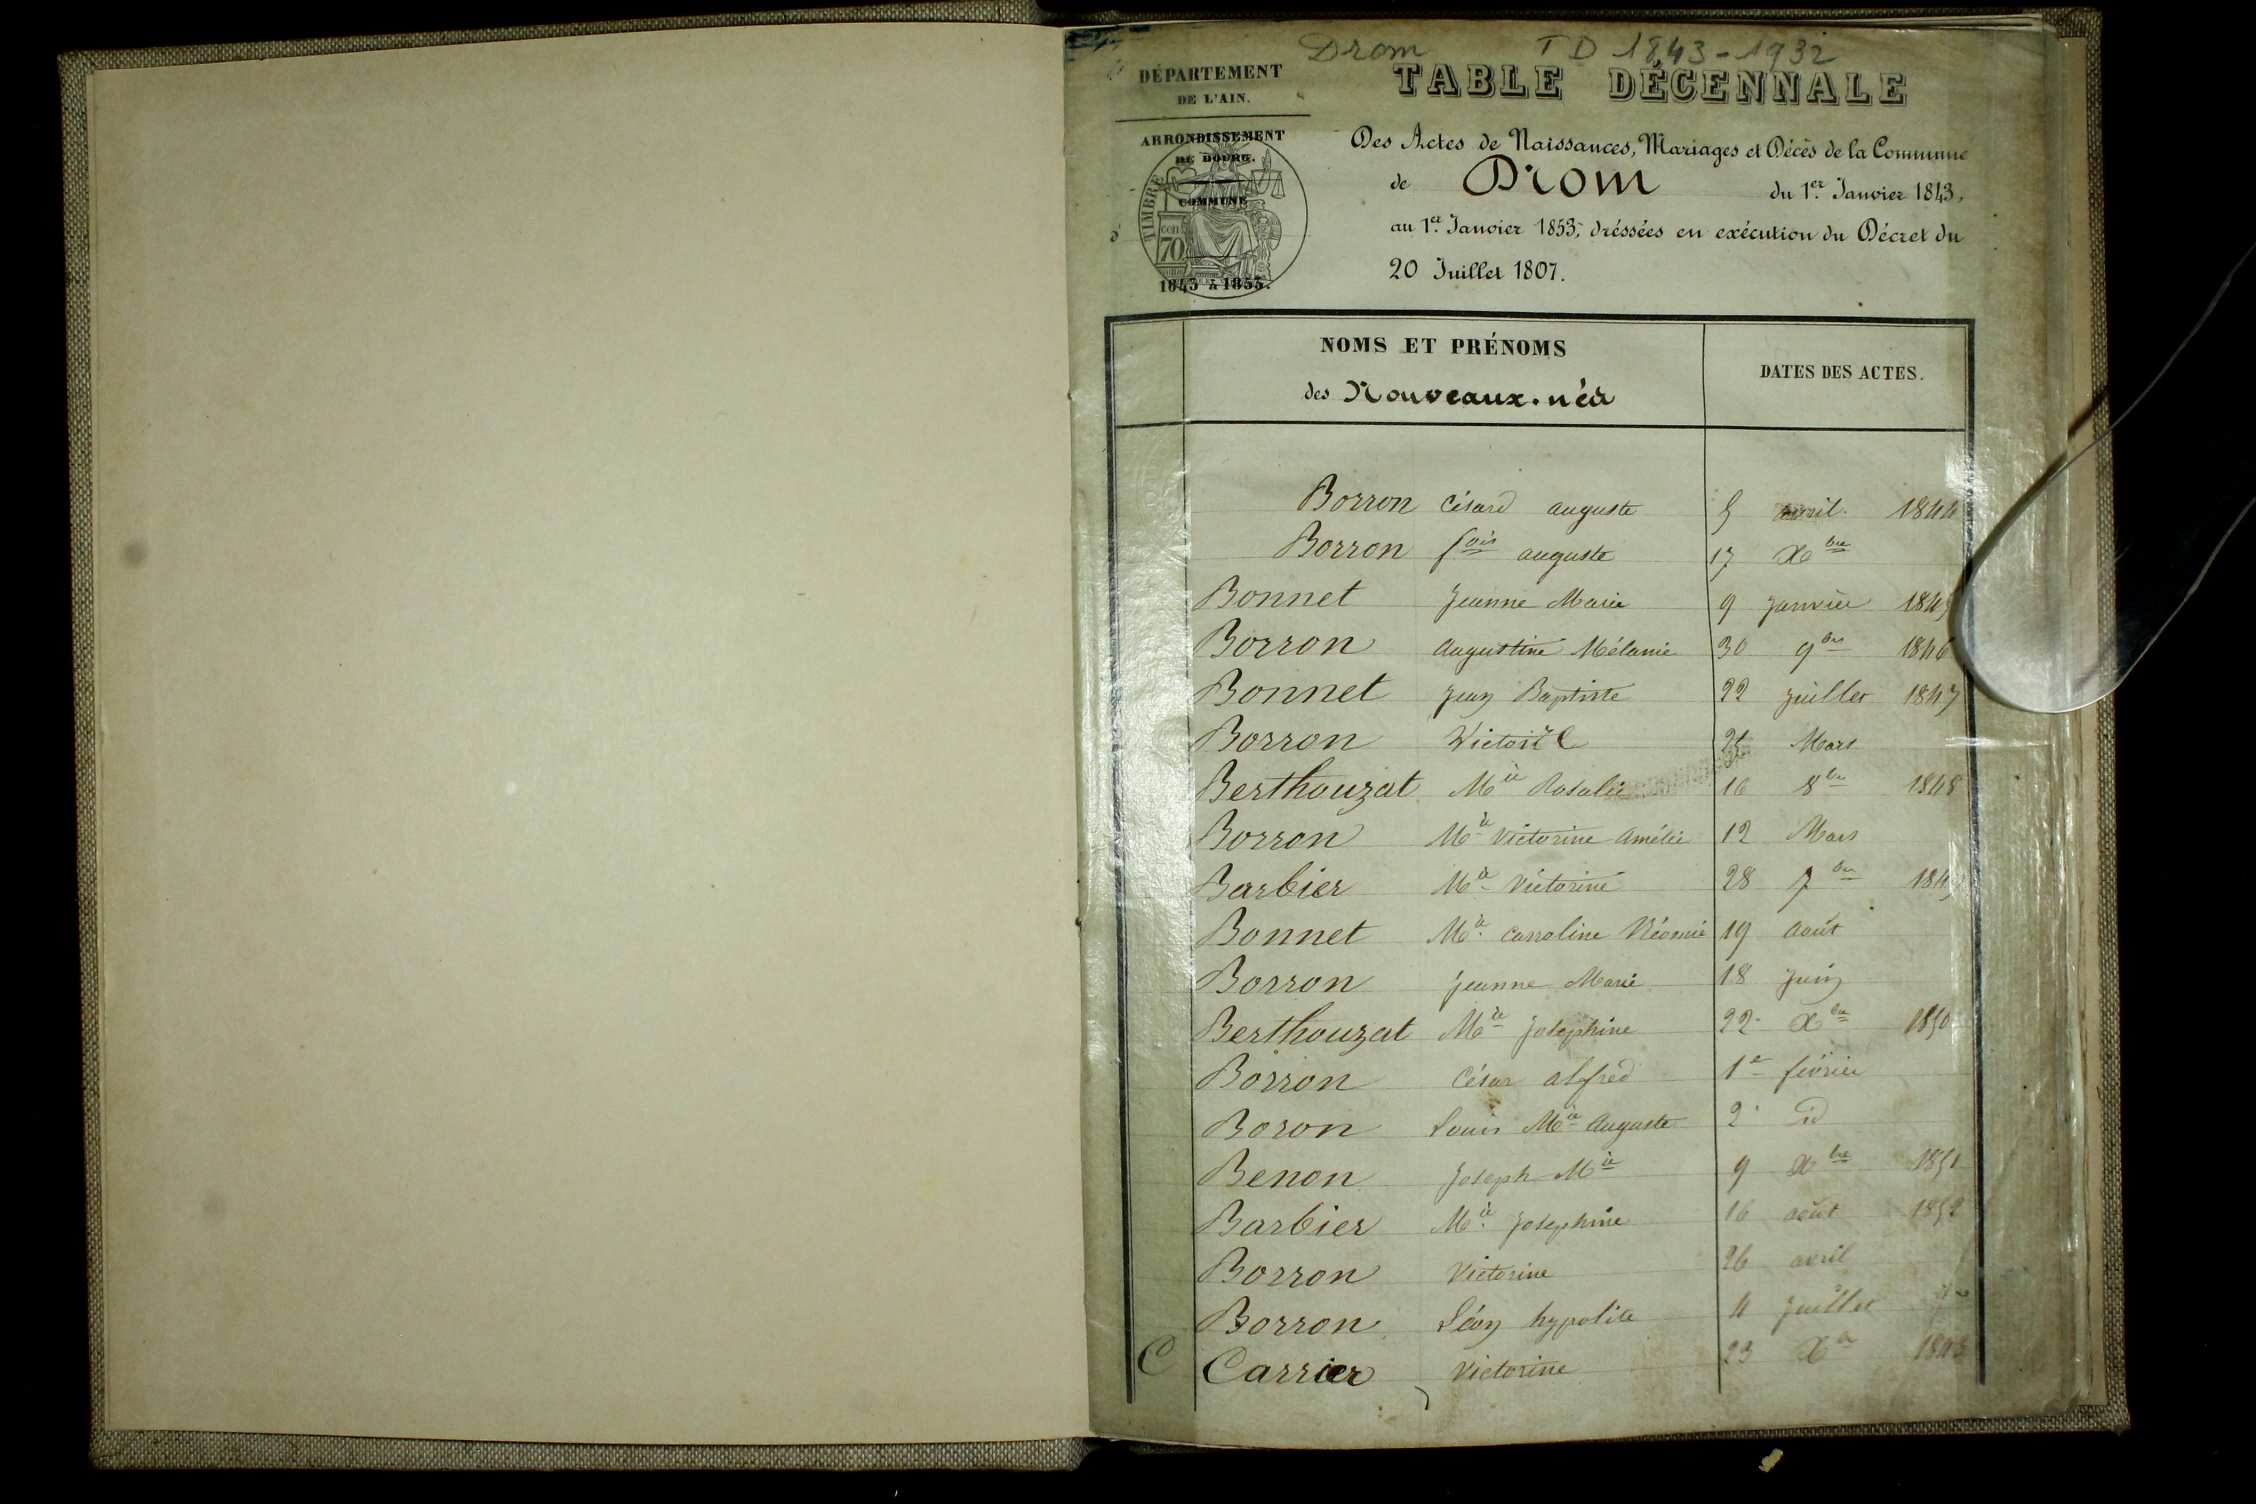 Drom TD 1843-1932
DÉPARTEMENT
DE L'AIN.
TABLE DÉCENNALE
ARRONDISSEMENT
DE BOURG.
COMMUNE
TIMBRE
70
1843 à 1853.
Des Actes de Naissances, Mariages et Décès de la Commune
de Drom du 1er Janvier 1843,
au 1er Janvier 1853, dréssées en exécution du Décret du
20 Juillet 1807.
NOMS ET PRÉNOMS
des Nouveaux-nés
DATES DES ACTES.
Borron Césard auguste 5 avril 1844
Borron fois auguste 17 Xbre
Bonnet Jeanne Marie 9 Janvier 1845
Borron Augustine Mélanie 30 9bre 1846
Bonnet Jean Baptiste 22 Juillet 1847
Borron Victoire 25 Mars
Berthouzat Mie Rosalie 16 8bre 1848
Borron Mie Victorine Amélie 12 Mars
Barbier Mie Victorine 28 7bre 1849
Bonnet Mie Carroline Néomie 19 Août
Borron Jeanne Marie 18 Juin
Berthouzat Mie Josephine 22 Xbre 1850
Borron César alfred 1er février
Boron Louis Mie Auguste 2 id
Benon Joseph Mie 9 Xbre 1851
Barbier Mie Josephine 16 août 1852
Borron Victorine 26 avril
Borron Léon hypolite 4 Juillet
C Carrier Victorine 23 Xbre 1843